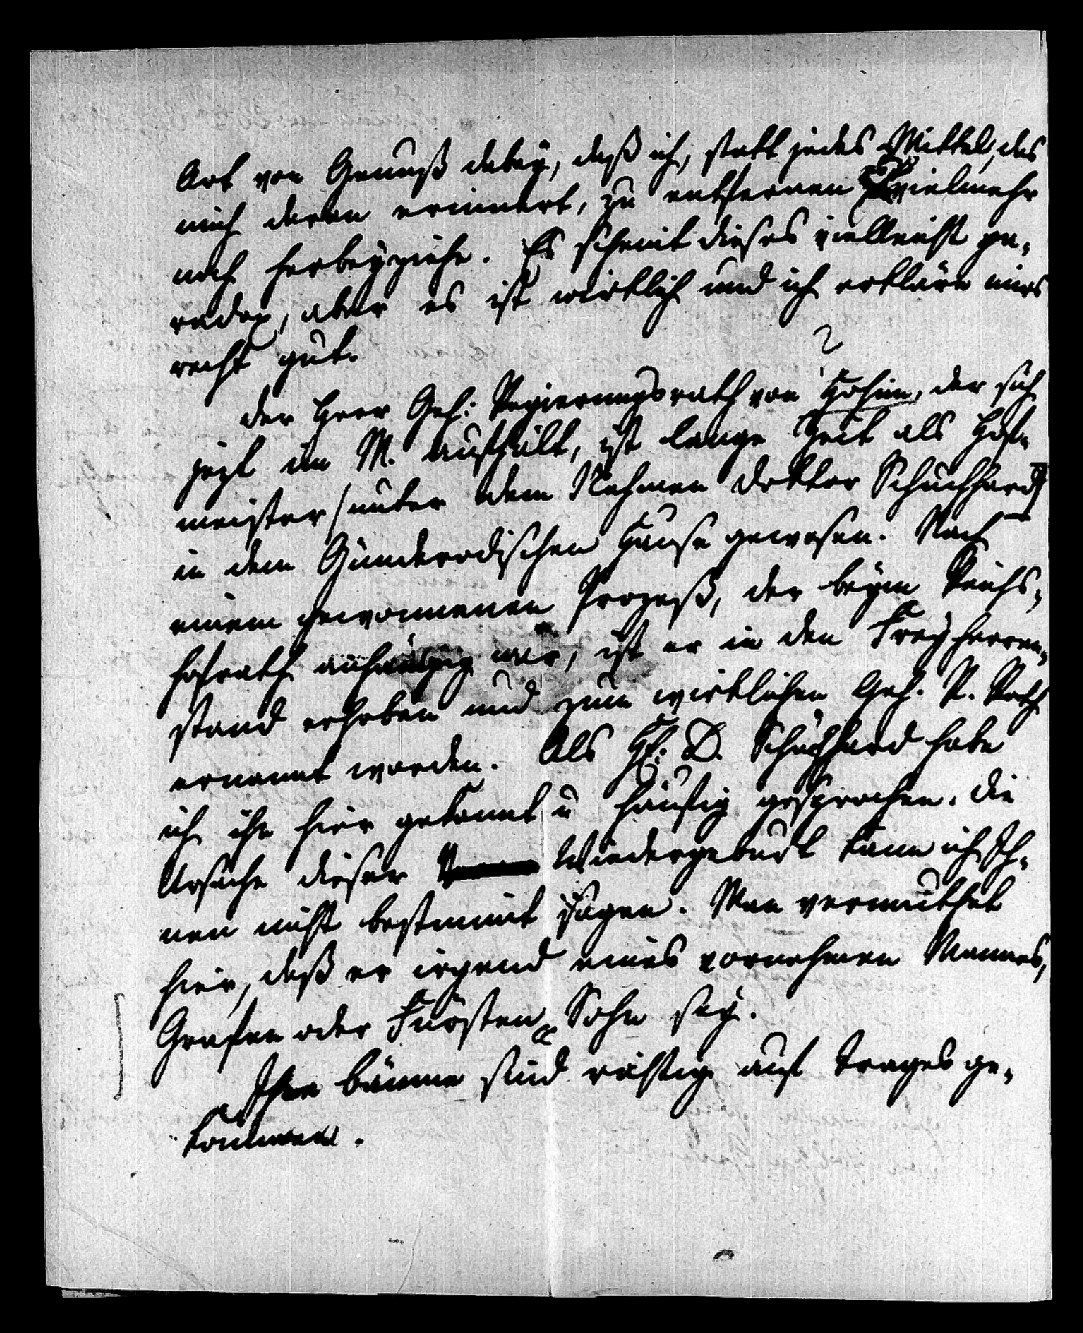 Art von Genuß dabey, daß ich, statt jedes Mittel, das
mich daran erinnert, zu entfernen vielmehr
noch herbeyziehe. Es scheint dieses vielleicht pa-
radox, aber es ist wirklich und ich erkläre mirs
recht gut.
Der Herr Geh: Regierungsrath von Hohim, der sich
jezt in M. aufhält, ist lange Zeit als Hof-
meister /unter dem Nahmen Doktor Schuchhard/
in dem Günderodischen Hause gewesen. Nach
einem gewonnenen Prozeß, der beym Reichs-
hofrath anhängig war, ist er in den Freyherren-
stand erhoben und zum wirklichen Geh. R. Rath
ernannt worden. Als H. D. Schuchhard habe
ich ihn hier gekannt u häufig gesprochen. Die
Ursache dieser Wiedergeburt kann ich Ih-
nen nicht bestimmt sagen. Man vermuthet
hier, daß er irgend eines vornehmen Mannes,
Grafen oder Fürsten Sohn sey.
Ihre bäume sind richtig auf Trages ge-
kommen.